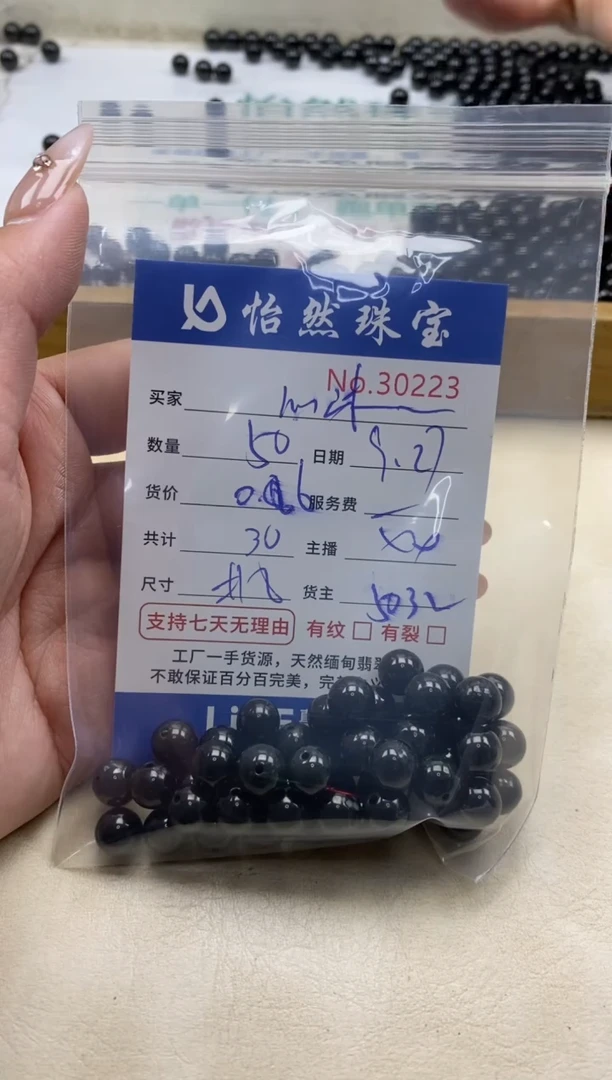 怡然珠宝
No.30223
买家
数量 50 日期 9.27
货价 服务费
共计 30 主播
尺寸 货主 5032
支持七天无理由 有纹 有裂
工厂一手货源，天然缅甸翡
不敢保证百分百完美，完